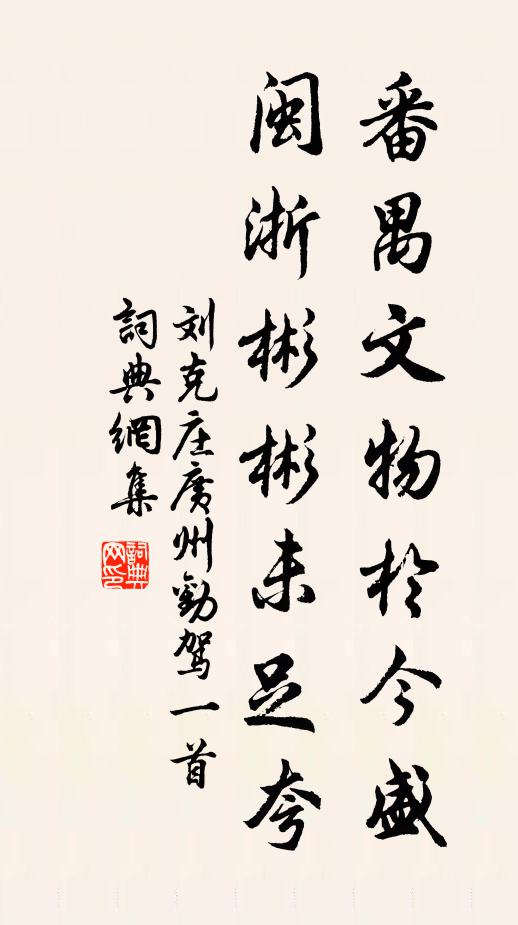 番禺文物於今盛
閩浙彬彬未足夸
刘克庄廣州勸駕一首
詞典網集
詞典网印